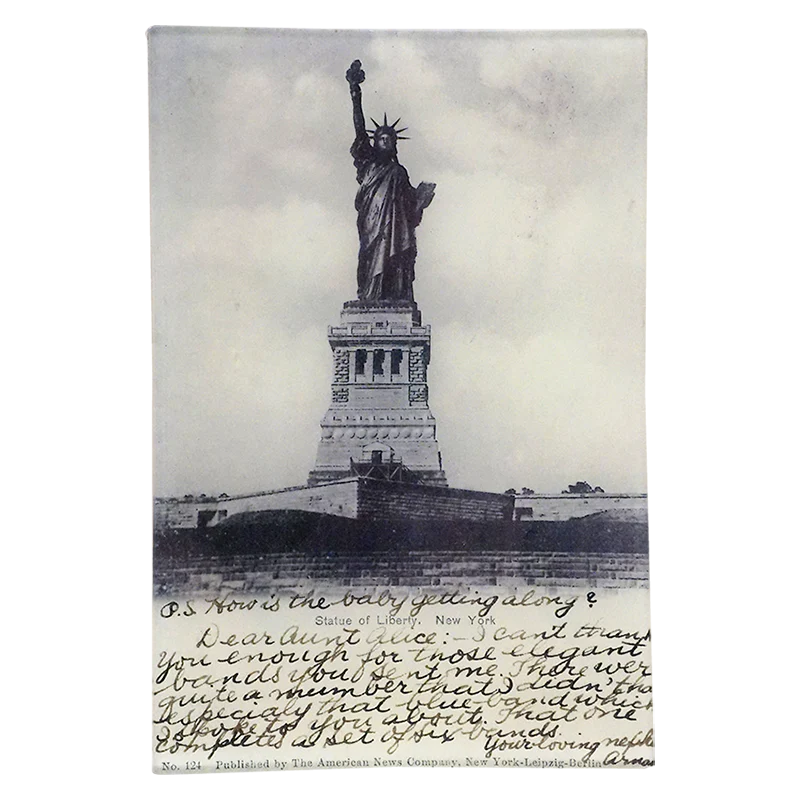 P.S. How is the baby getting along?
Statue of Liberty, New York
Dear Aunt Alice:- I cant thank
you enough for those elegant
bands you sent me. There wer
quite a mumber that I didn't ha
especialy that blue band which
I spoke to you about. That one
completes a set of six bands.
Your loving
No. 124 Published by The American News Company, New York-Leipzig-Berlin